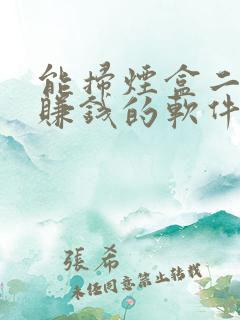 能掃煙盒二
賺錢的軟件
張希
未經同意禁止轉載